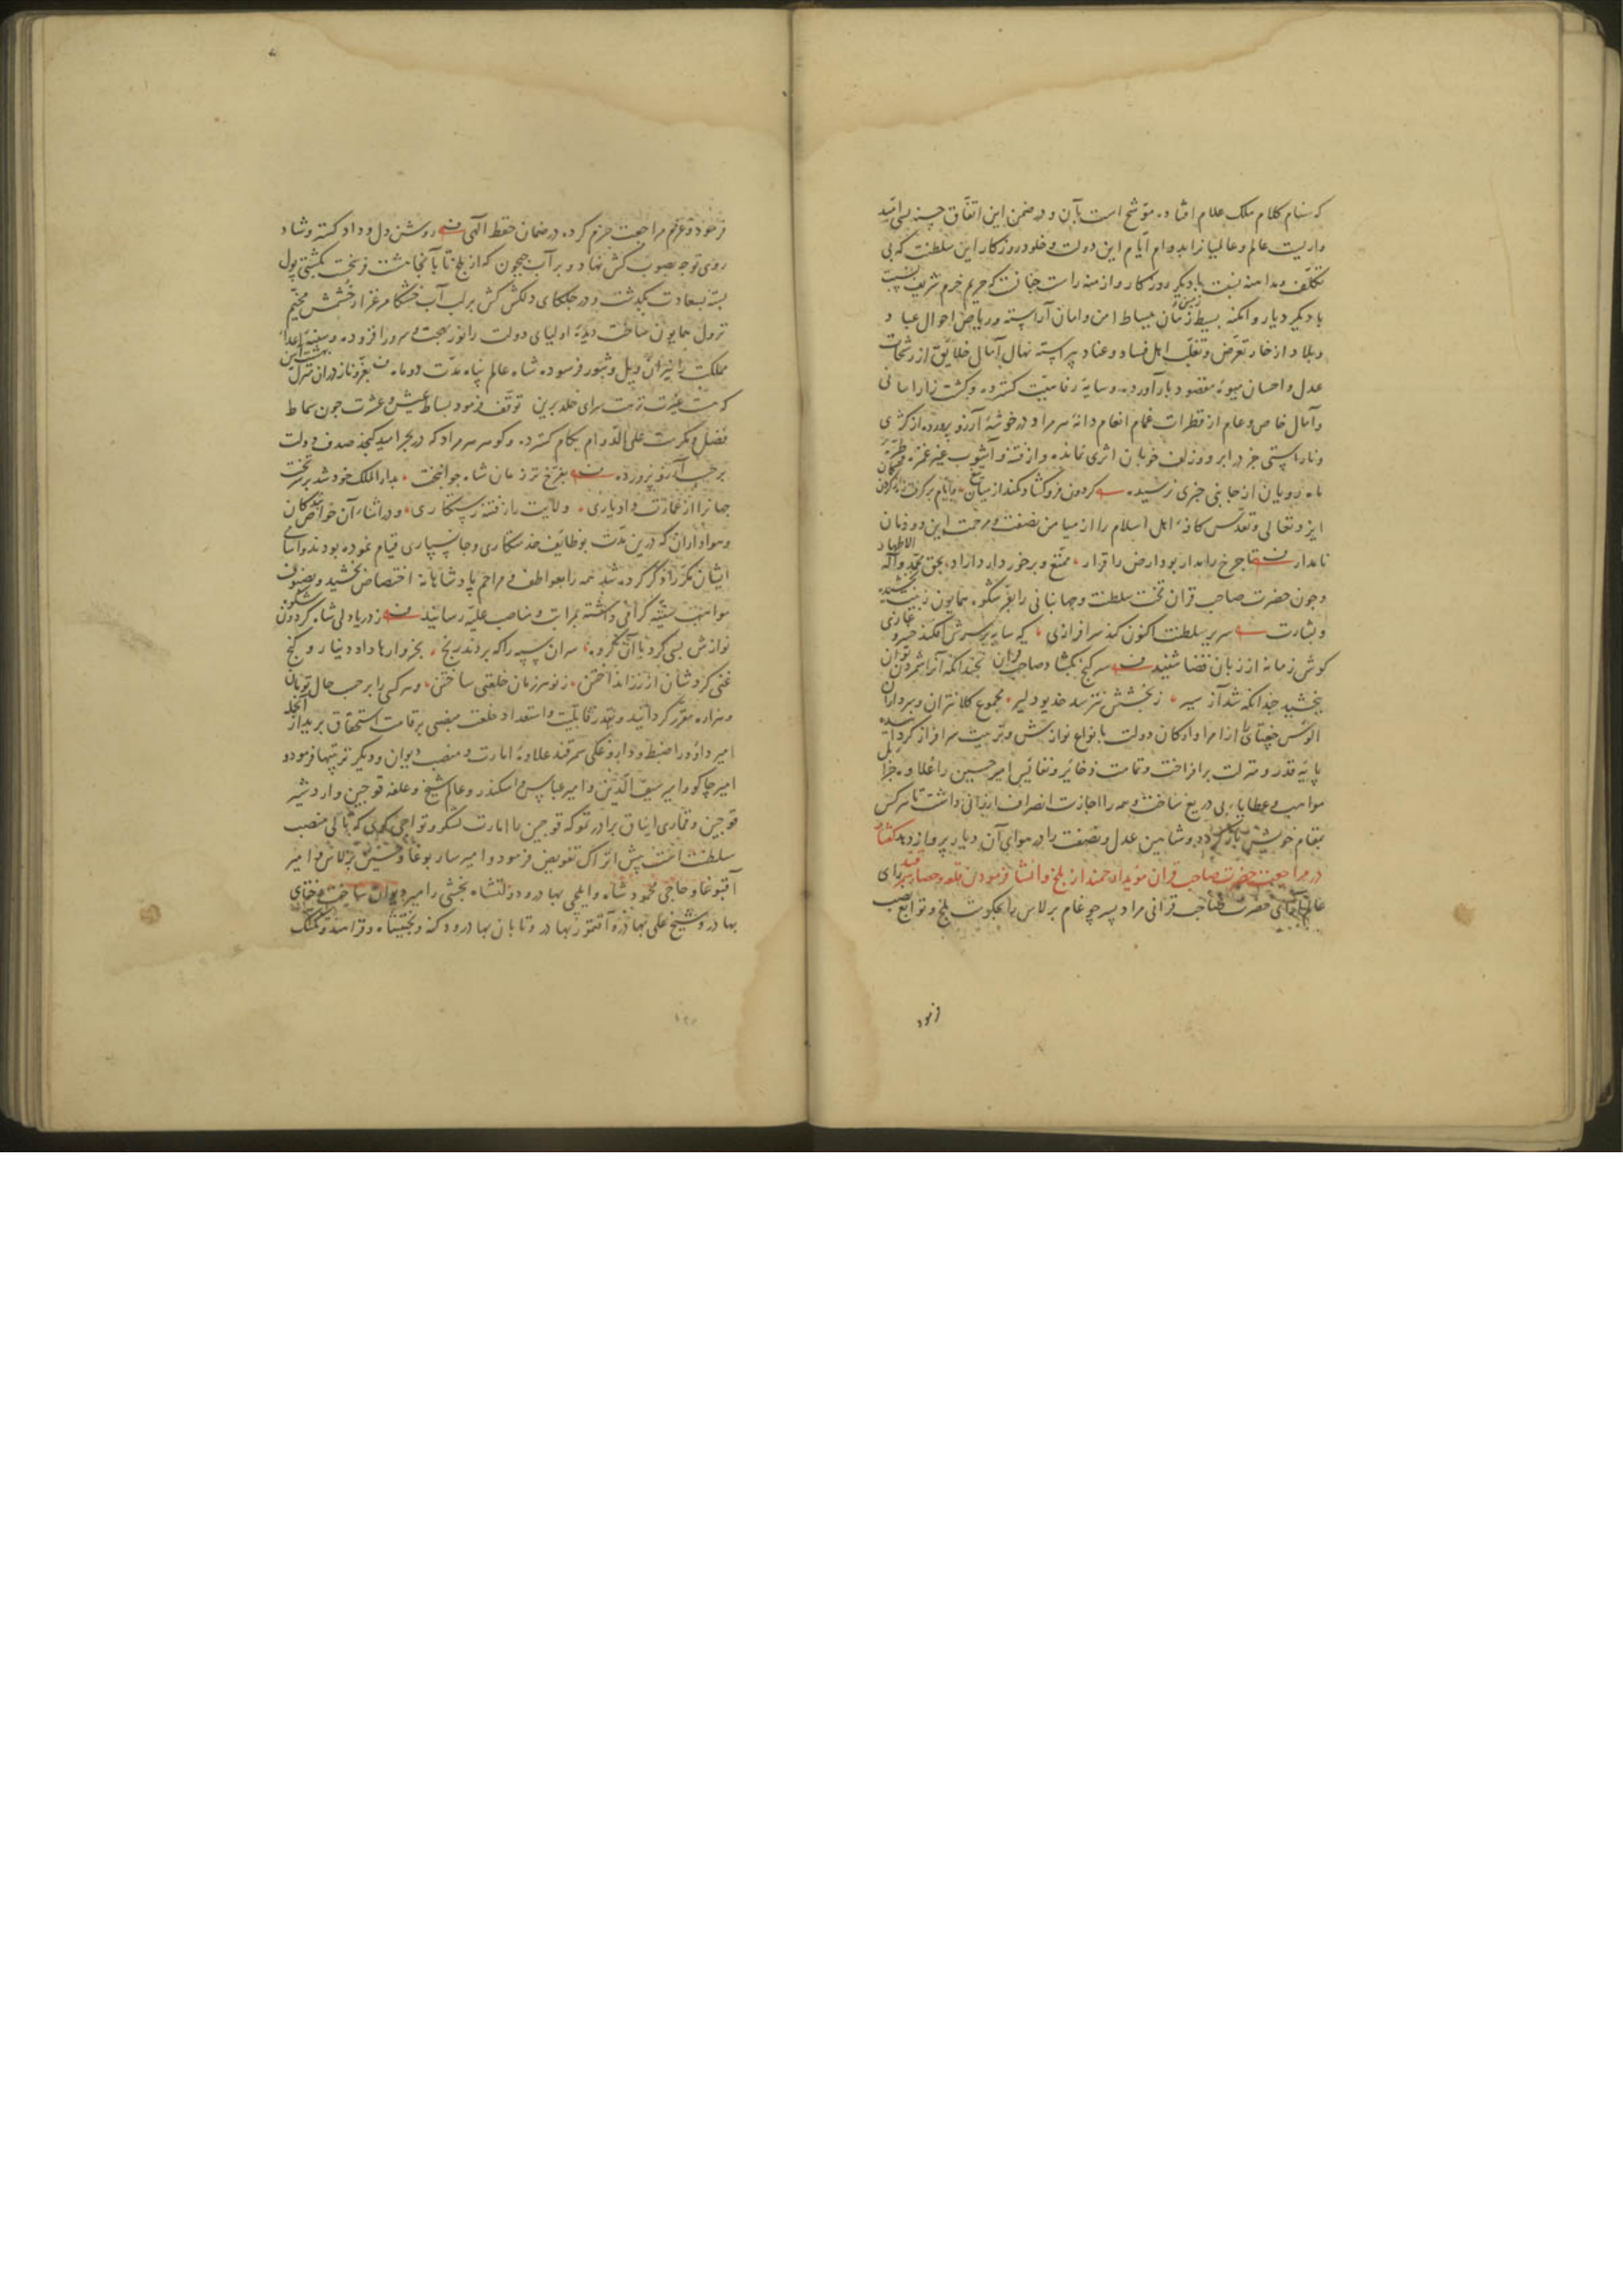 که بنام کلام ملک علام افتاده موشح است بآن و در ضمن این اتفاق حسنه بسی امید
واریست عالم و عالمیانرا بدوام ایام این دولت و خلود روزکار این سلطنت که بی
تکلف و مداهنه نسبت با دیکر روزکار و ازمنه راست چنانست که حریم حرم شریف نسبت
با دیکر دیار و امکنه بسیط زمین و زمان ببساط امن و امان آراسته و ریاض احوال عباد و
و بلاد از خار تعرض و تغلب اهل فساد و عناد پیراسته نهال آمال خلایق از رشحات
عدل و احسان میوه مقصود بار آورده و سایه رفاهیت کسترده و کشت زار امانی
و آمال خاص و عام از قطرات غمام انعام دانه هر مراد در خوشه آرزو پرورده از کژی
و ناراستی جز در ابرو و زلف خوبان اثری نمانده و از فتنه و آشوب غیر غمزه و طره
ماه رویان از جا بنی خبری نرسیده کردون فرو کشاد کمند از میان تیغ و ایام بر گرفت زه از گردن کمان
ایزد تعالی و تقدس کافه اهل اسلام را از میامن نصفت و مرحمت این دودمان
نامدار تا چرخ را مدار بود ارض را قرار ممتع و برخوردار داراد بحق محمد و آله الاطهار
و چون حضرت صاحب قران تخت سلطنت و جهانبانی را بفر شکوه همایون زینت بخشید
و بشارت سریر سلطنت اکنون کند سرافرازی که سایه بر سرش افکند خسرو غازی
کوش زمانه از زبان قضا شنید سر کنج بکشاد صاحب قران بچندانکه آنرا شمردن توان
ببخشید چندانکه شد آز سیر ز بخشش نترسد خدیو دلیر مجموع کلانتران و سرداران
الوس جغتای از امرا و ارکان دولت بانواع نوازش و تربیت سرافراز کردانیده
پایه قدر و منزلت برافراخت و تمامت ذخایر و نفایس امیر حسین را علاوه جزایل
مواهب و عطایای بی دریغ ساخت و همه را اجازت انصراف ارزانی داشت تا هر کس
بمقام خویش باز کردد و شاهین عدل و نصفت را در هوای آن دیار پرواز دهد کفتار
در مراجعت حضرت صاحب قران مؤید ارجمند از بلخ و انشا فرمودن قلعه و حصار سمرقند رای
عالم آرای حضرت صاحب قرانی مراد پسر چوغام برلاس را بحکومت بلخ و توابع نصب
فرمود
فرمود و عزم مراجعت جزم کرده در ضمان حفظ الهی روشن دل و داد کستر و شاد
روی توجه بصوب کش نهاد و بر آب جیحون که از بلخ تا بآنجا هشت فرسخست بکشتی پول
بسته بسعادت بکذشت و در جلکای دلکش کش بر لب آب خشکا مرغزار خشمش مخیم
نزول همایون ساخت دیده اولیای دولت را نور بهجت و سرور افزوده و سینه اعدا
مملکت را نیران ویل و ثبور فرسوده شاه عالم پناه مدت دو ماه بعز و ناز در ان منزل بهشت آیین
که هست غیرت نزهت سرای خلد برین توقف فرمود بساط عیش و عشرت چون سماط
فضل و مکرمت علی الدوام بکام کسترده و کوهر هر مراد که در بحر امید کنجد صدف دولت
بر حسب آرزو پرورده بفرخ ترز مان شاه جوانبخت بدار الملک خود شد بر سر تخت
جهانرا از عمارت داد یاری ولایت را ز فتنه رستکاری و در اثناء آن خواص بندکان
و هواداران که درین مدت بوظایف خدمتکاری و جانسپاری قیام نموده بودند و اسامی
ایشان مکرر ذکر کرده شد همه را بعواطف و مراحم پادشاهانه اختصاص بخشید و بصنوف
مواهب سنیه کرامی داشته بمراتب و مناصب علیه رسانید ز دریا دلی شاه کردون شکوه
نوازش بسی کرد با آن کروه سران سپه را که بردند رنج بخروارها داد دینار و کنج
غنی کرد شان از زر انداختن ز نو هر زمان خلعتی ساختن و هر کس را بر حسب حال تومان
و هزاره مقرر کردانید و بقدر قابلیت و استعداد خلعت منصبی بر قامت استحقاق برید از آنجمله
امیر داود را ضبط و داروغکی سمرقند علاوه امارت و منصب دیوان و دیکر تربیتها فرمود و
امیر جاکو و امیر سیف الدین و امیر عباس و اسکندر و عالم شیخ و علفه قوجین و اردشیر
قوجین و قماری ایناق برادر تموکه قوجین را امارت لشکر و تواجی کری که تالی منصب
سلطنت است پیش اتراک تفویض فرمود و امیر سار بوغا و حسین برلاس و امیر
آقبوغا و حاجی محمود شاه و ایلچی بهادر و دولتشاه بخشی را امیر دیوان ساخت و ختای
بهادر و شیخ علی بهادر و آقتمور بهادر و تابان بهادر و